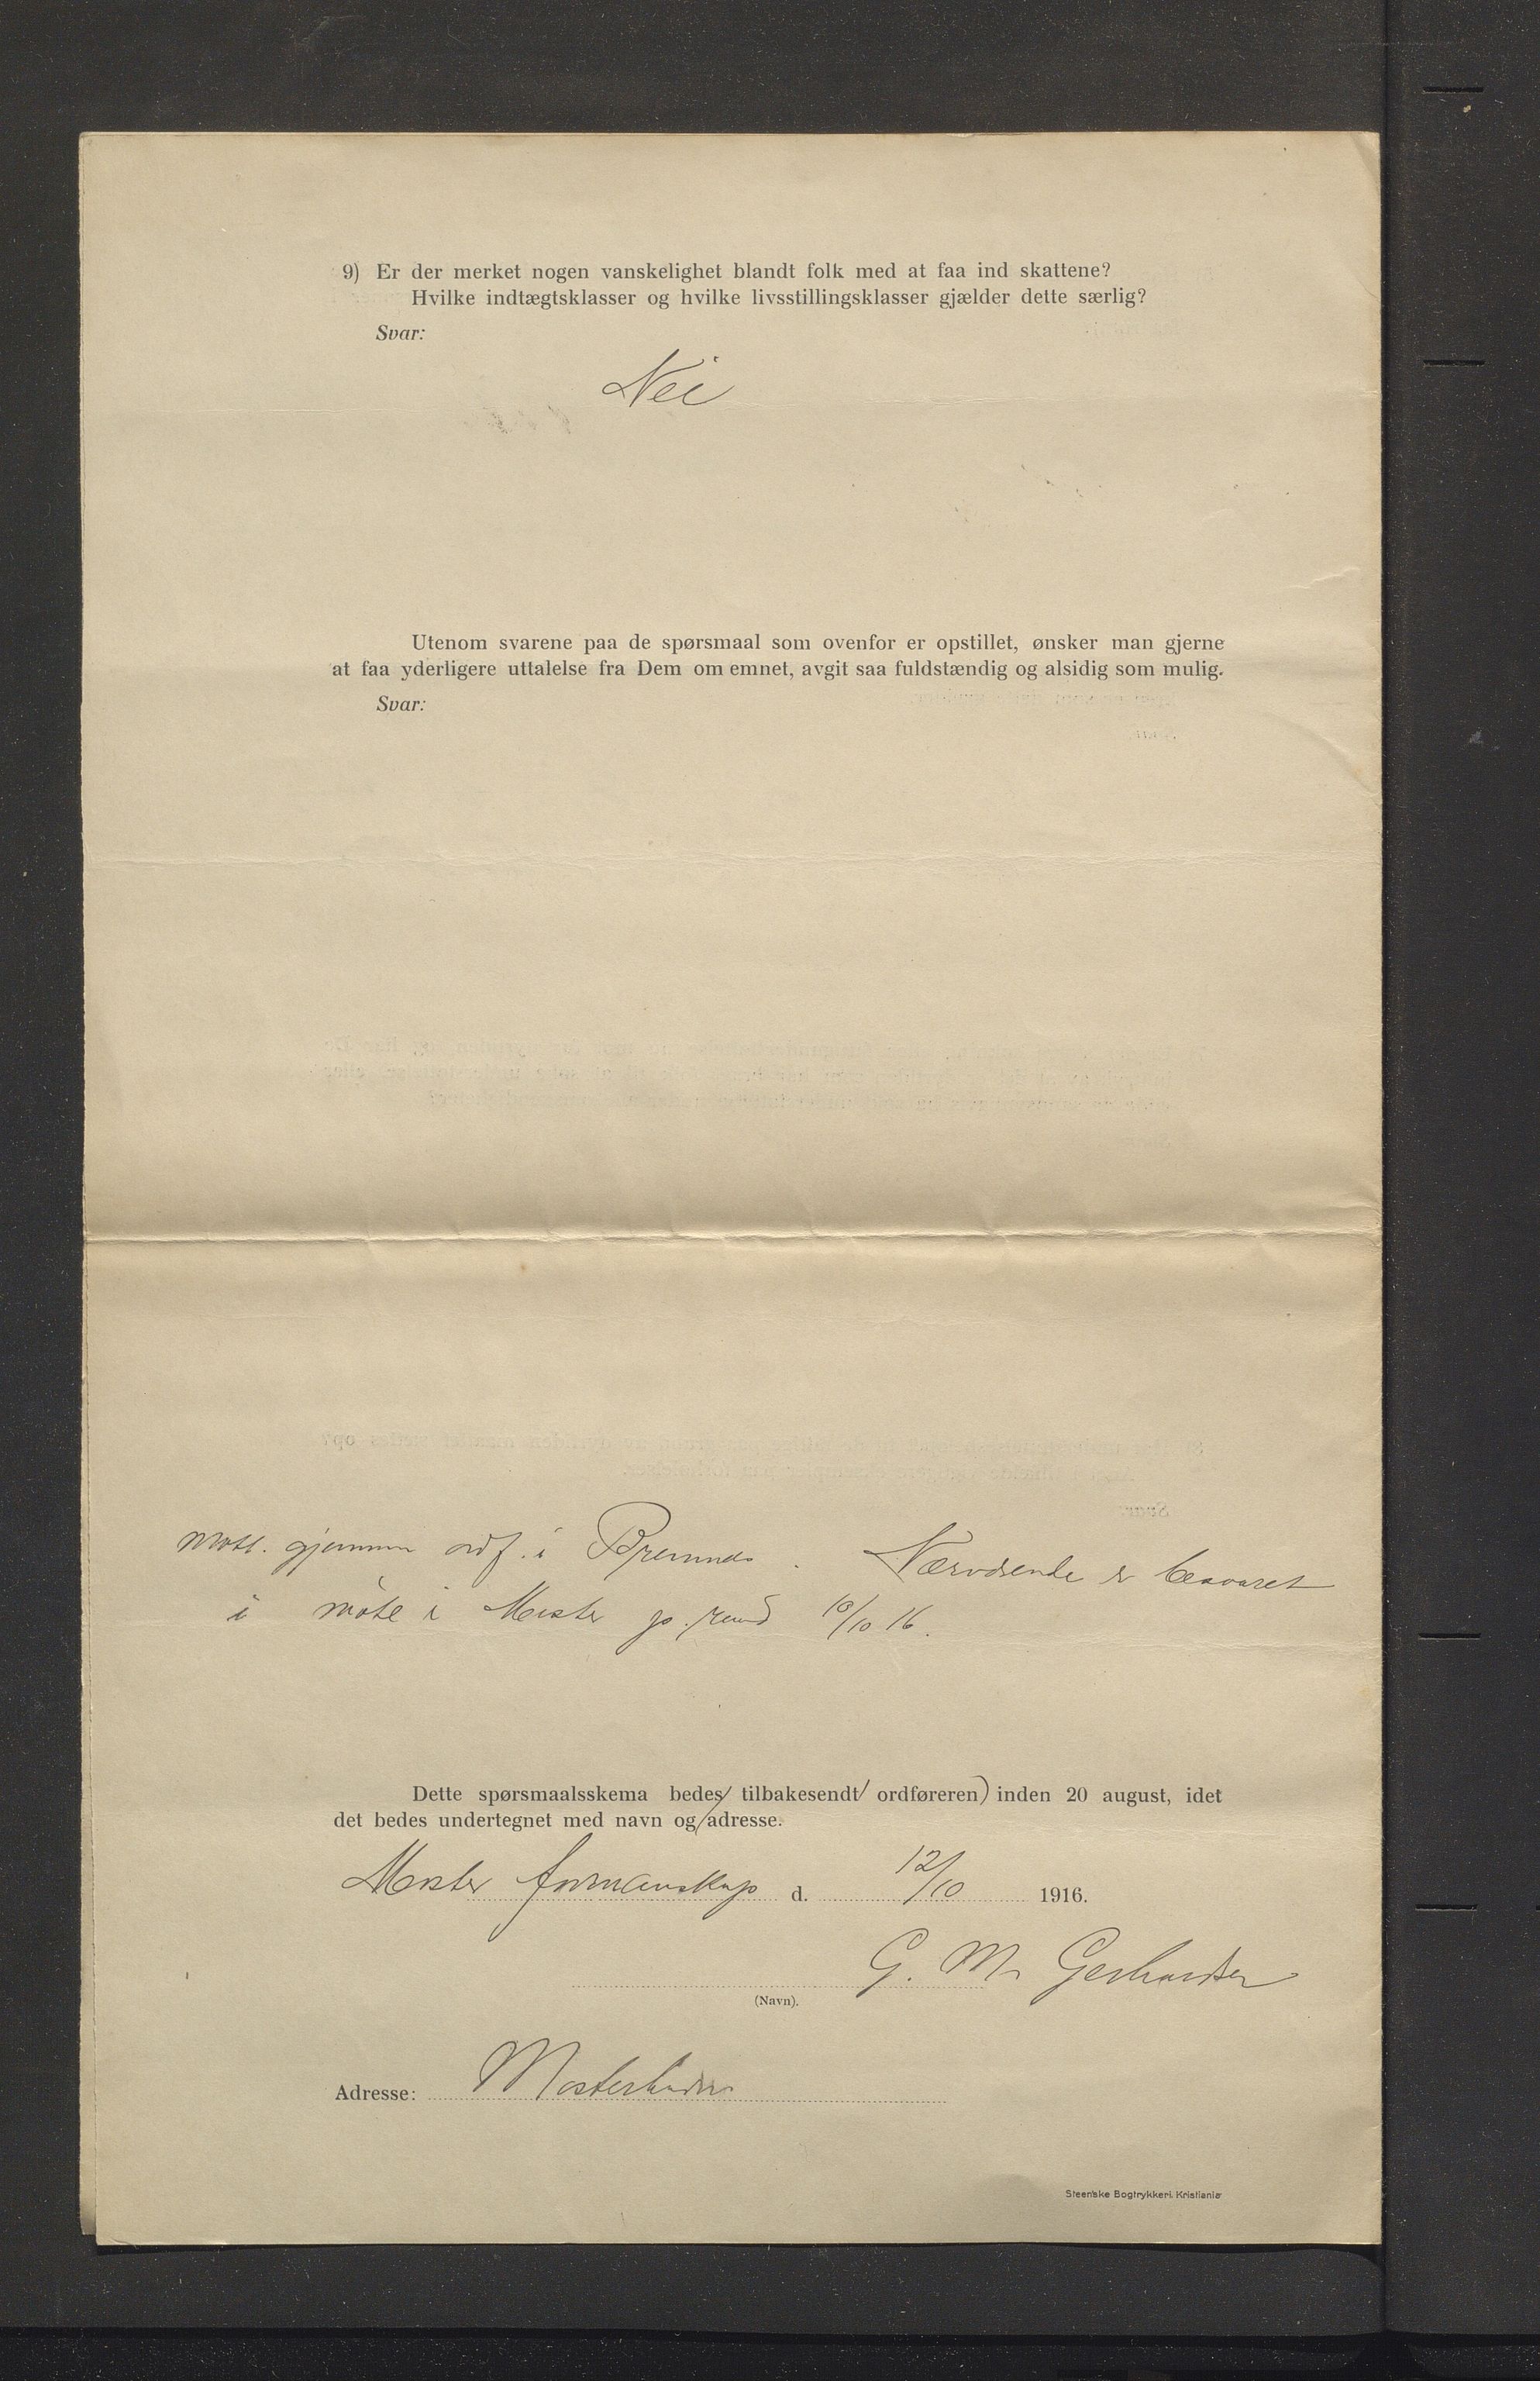 9) Er der merket nogen vanskelighet blandt folk med at faa ind skattene?
Hvilke indtægtsklasser og hvilke livsstillingsklasser gjælder dette særlig?
Svar:
Nei
Utenom svarene paa de spørsmaal som ovenfor er opstillet, ønsker man gjerne
at faa yderligere uttalelse fra Dem om emnet, avgit saa fuldstændig og alsidig som mulig.
Svar:
Mott. gjennem ordf. i Bremnes. Nærværende er besvaret
i møte i Moster 10/10 16.
Dette spørsmaalsskema bedes tilbakesendt ordføreren) inden 20 august, idet
det bedes undertegnet med navn og adresse.
Moster formanskap d. 12/10 1916.
G. M. Gerhardsen
(Navn).
Adresse: Mosterhavn
Steen'ske Bogtrykkeri. Kristiania